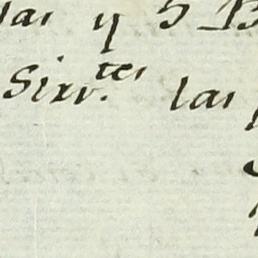 las y 5 B
Sirv.tes las